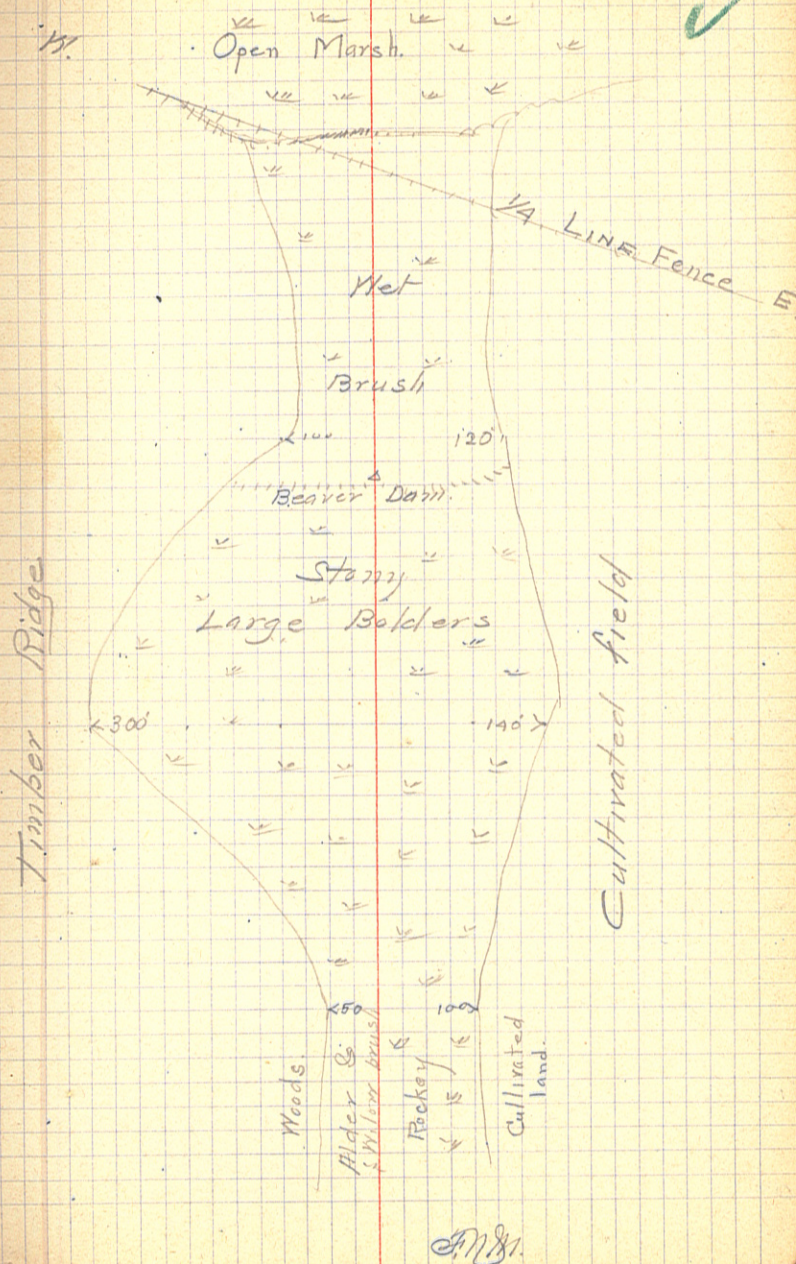 W.
Open Marsh.
1/4 LINE Fence
E.
Wet
Brush
<100
120'
Beaver Dam.
Stony
Large Bolders
Timber Ridge
Cultivated field
<300'
140'>
<50
100>
Woods.
Alder &
Wilow brush
Rockey
Cultivated
land.